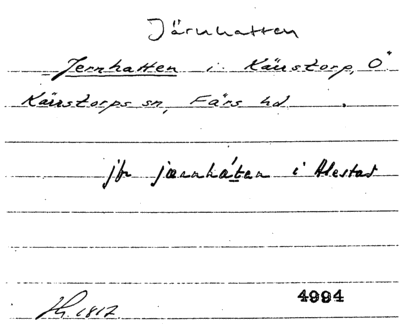 Järnhatten
Jernhatten i Kärrstorp, Ö
Kärrstorps sn, Färs hd.
jfr jærnhátən i Alestad
1817
4994